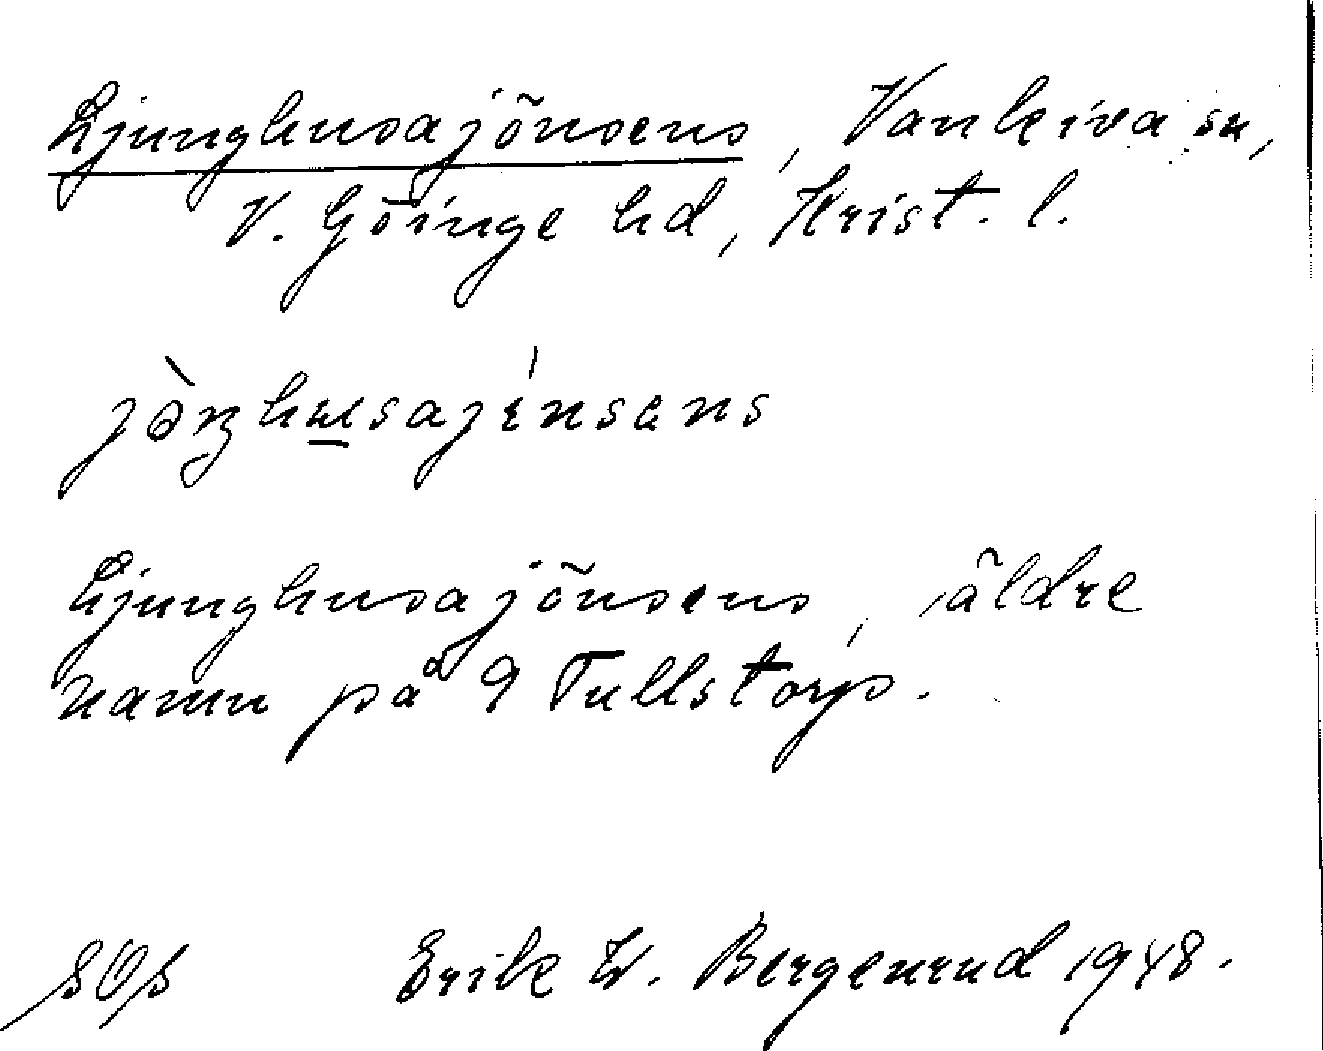 Ljunghusajönsens, Vankiva sn,
V. Göinge hd, Krist. l.
jòŋhɯsajénsens
Ljunghusajönsens, äldre
namn på 9 Tullstorp.
Erik W. Bergenrud 1948.